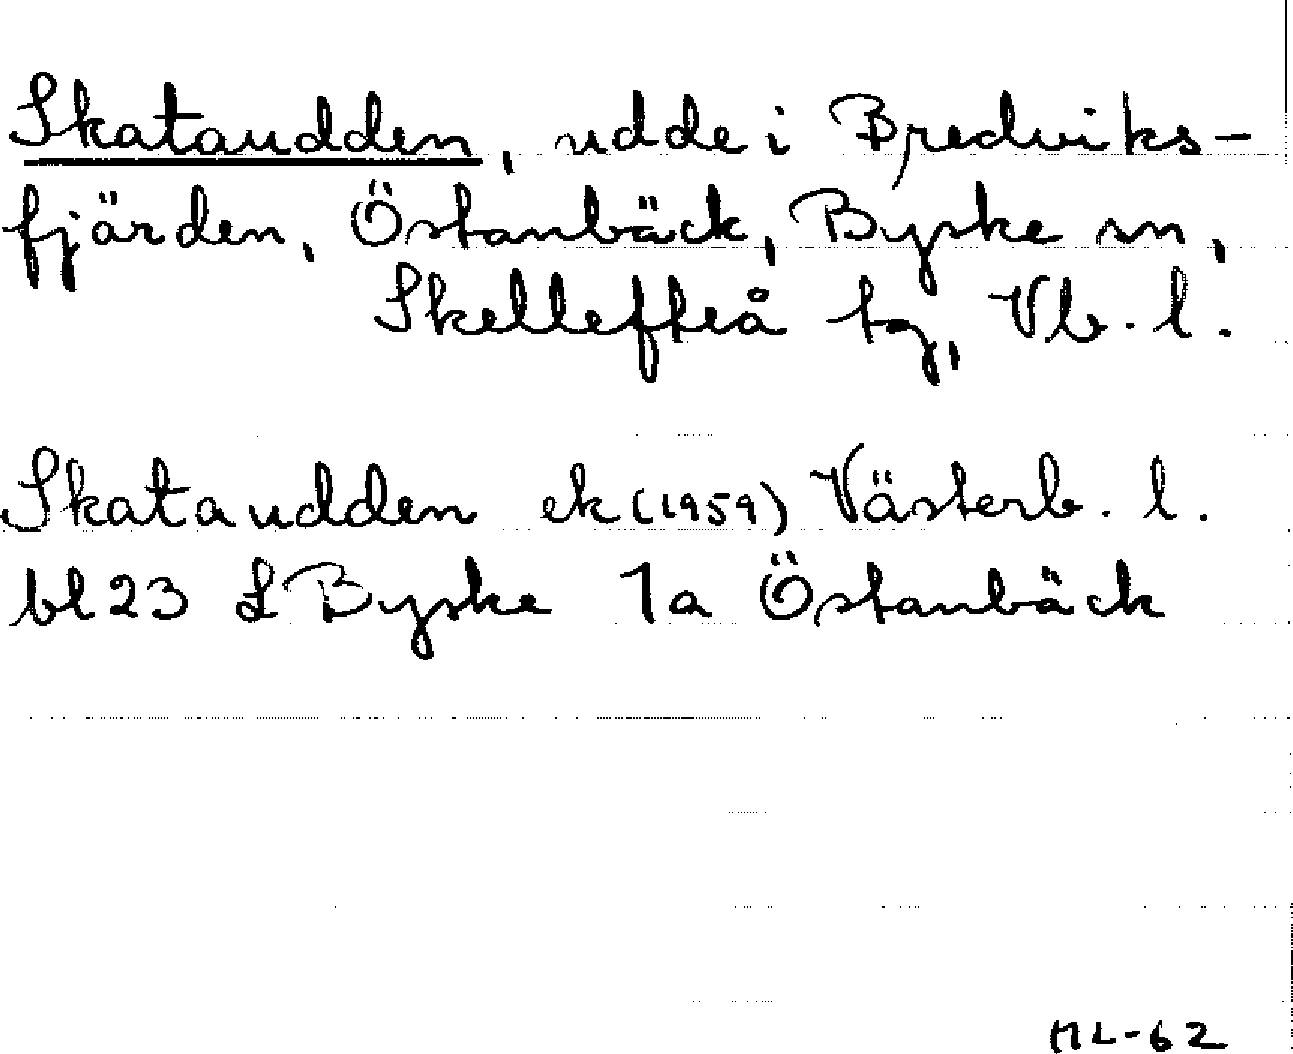 Skataudden, udde i Bredviks-
fjärden, Östanbäck, Byske sn,
Skellefteå tg, Vb. l.
Skataudden ek (1959) Västerb. l.
bl 23 L Byske 1a Östanbäck
ML-62